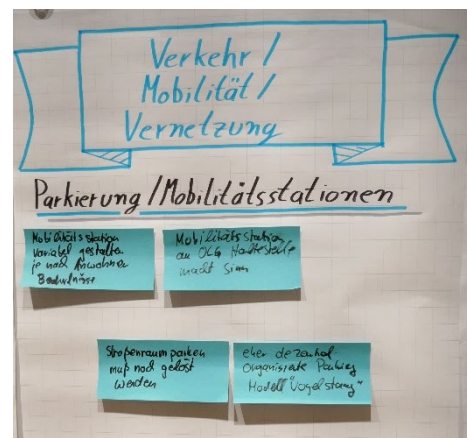 Verkehr /
Mobilität /
Vernetzung
Parkierung / Mobilitätsstationen
Mobilitätsstation
variabel gestalten
je nach Anwohner
Bedürfnisse
Mobilitätsstation
an OEG Haltestelle
macht Sinn
Straßenraumparken
muß noch gelöst
werden
eher dezentral
organisierte Parking
Modell "Vogelstang"